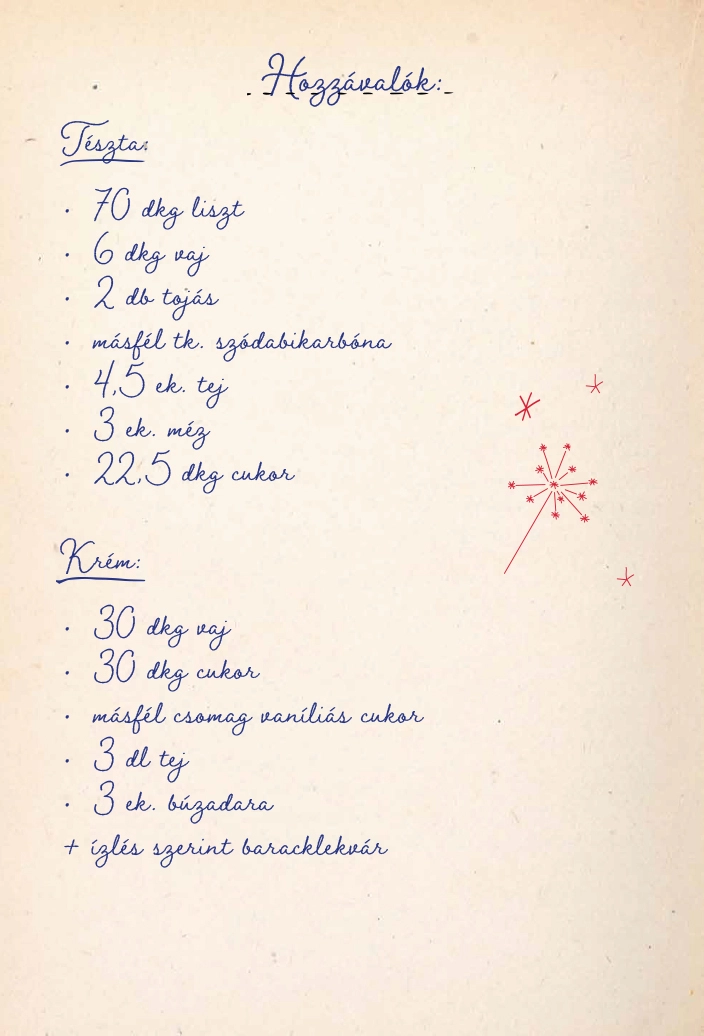 Hozzávalók:
Tészta:
· 70 dkg liszt
· 6 dkg vaj
· 2 db tojás
· másfél tk. szódabikarbóna
· 4,5 ek. tej
· 3 ek. méz
· 22,5 dkg cukor
Krém:
· 30 dkg vaj
· 30 dkg cukor
· másfél csomag vaníliás cukor
· 3 dl tej
· 3 ek. búzadara
+ ízlés szerint baracklekvár